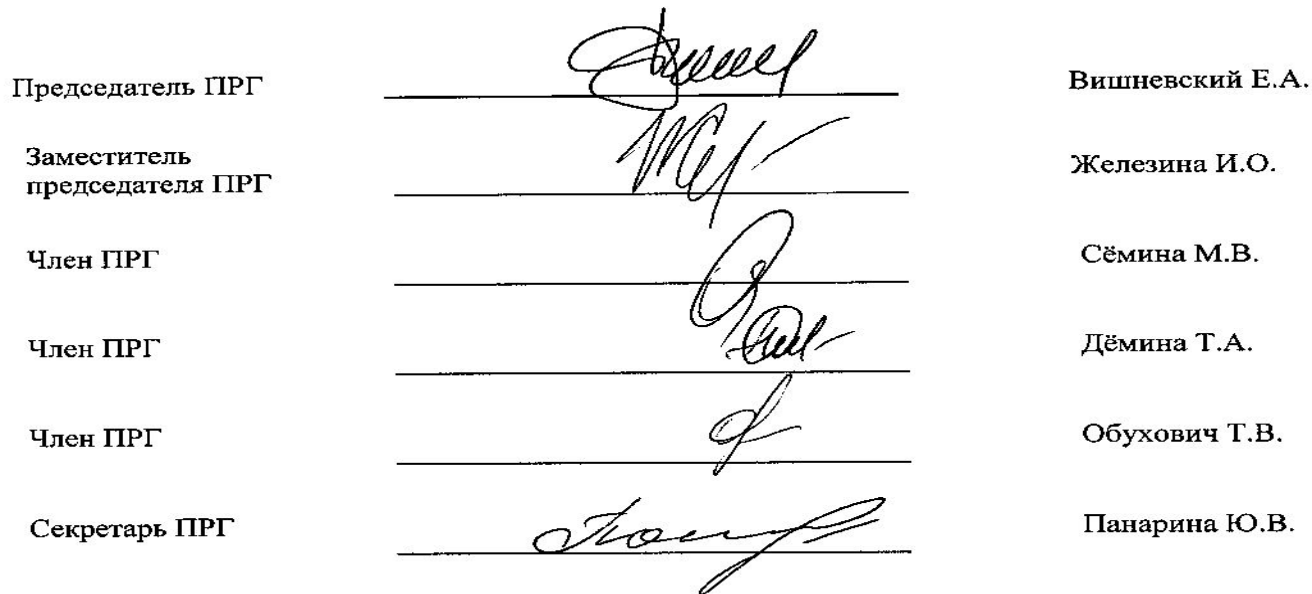 Председатель ПРГ Вишневский Е.А.
Заместитель
председателя ПРГ Железина И.О.
Член ПРГ Сёмина М.В.
Член ПРГ Дёмина Т.А.
Член ПРГ Обухович Т.В.
Секретарь ПРГ Панарина Ю.В.